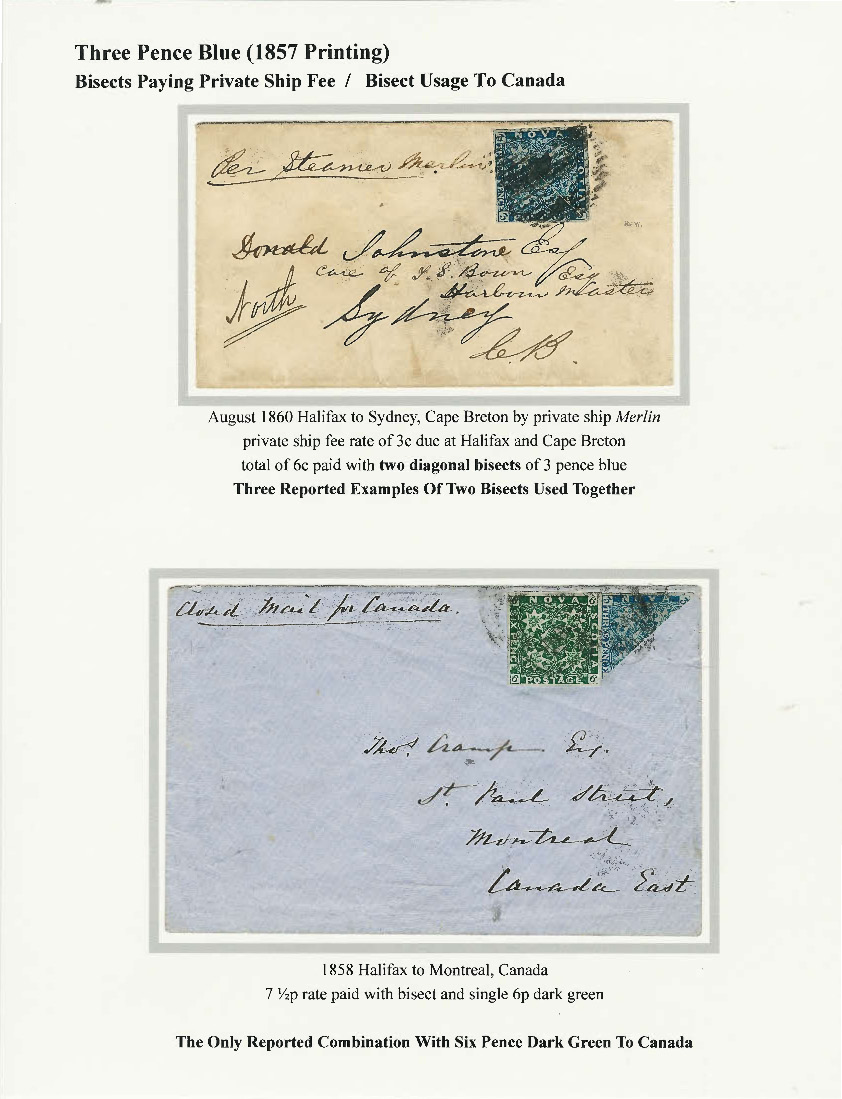 Three Pence Blue (1857 Printing)
Bisects Paying Private Ship Fee / Bisect Usage To Canada
Per Steamer Merlin
NOVA
Donald Johnstone Esq
Care of J. S. Bown Esq
Harbour Master
North Sydney
C.B.
August 1860 Halifax to Sydney, Cape Breton by private ship Merlin
private ship fee rate of 3c due at Halifax and Cape Breton
total of 6c paid with two diagonal bisects of 3 pence blue
Three Reported Examples Of Two Bisects Used Together
Closed Mail for Canada.
NOVA
SCOTIA
POSTAGE
SIX PENCE
Thos. Cramp Esq.
St. Paul Street,
Montreal
Canada East
1858 Halifax to Montreal, Canada
7 ½p rate paid with bisect and single 6p dark green
The Only Reported Combination With Six Pence Dark Green To Canada